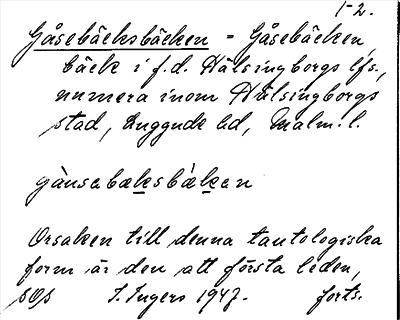 1-2.
Gåsebäcksbäcken = Gåsebäcken,
bäck i f.d. Hälsingborgs lfs.,
numera inom Hälsingborgs
stad, Luggude hd, Malm. l.
gåusabæksbækan
Orsaken till denna tautologiska
form är den att första leden,
SOS I. Ingers 1947. forts.